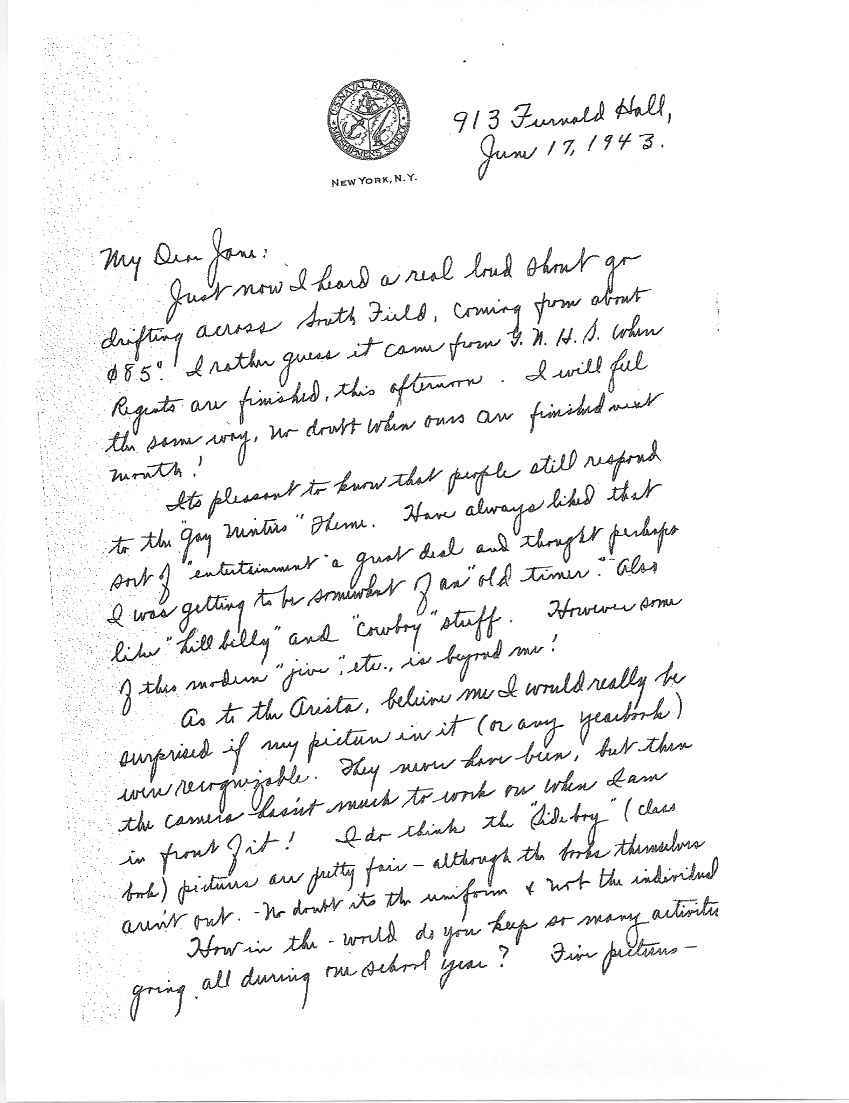 U.S. NAVAL RESERVE
MIDSHIPMEN'S SCHOOL
NEW YORK, N.Y.
913 Furnald Hall,
June 17, 1943.
My Dear Jane:
Just now I heard a real loud shout go
drifting across South Field, coming from about
085°. I rather guess it came from G. N. H. S. when
Regents are finished, this afternoon. I will feel
the same way, no doubt when ours are finished next
month!
Its pleasant to know that people still respond
to the "Gay Nineties" Theme. Have always liked that
sort of "entertainment" a great deal and thought perhaps
I was getting to be somewhat of an "old timer." Also
like "hill billy" and "cowboy" stuff. However some
of this modern "jive", etc., is beyond me!
As to the Arista, believe me I would really be
surprised if my picture in it (or any yearbook)
were recognizable. They never have been, but then
the camera hasn't much to work on when I am
in front of it! I do think the "Sideboy" (class
book) pictures are pretty fair - although the books themselves
aren't out. - No doubt its the uniform & not the individual
How in the - world do you keep so many activities
going all during one school year? Five pictures -